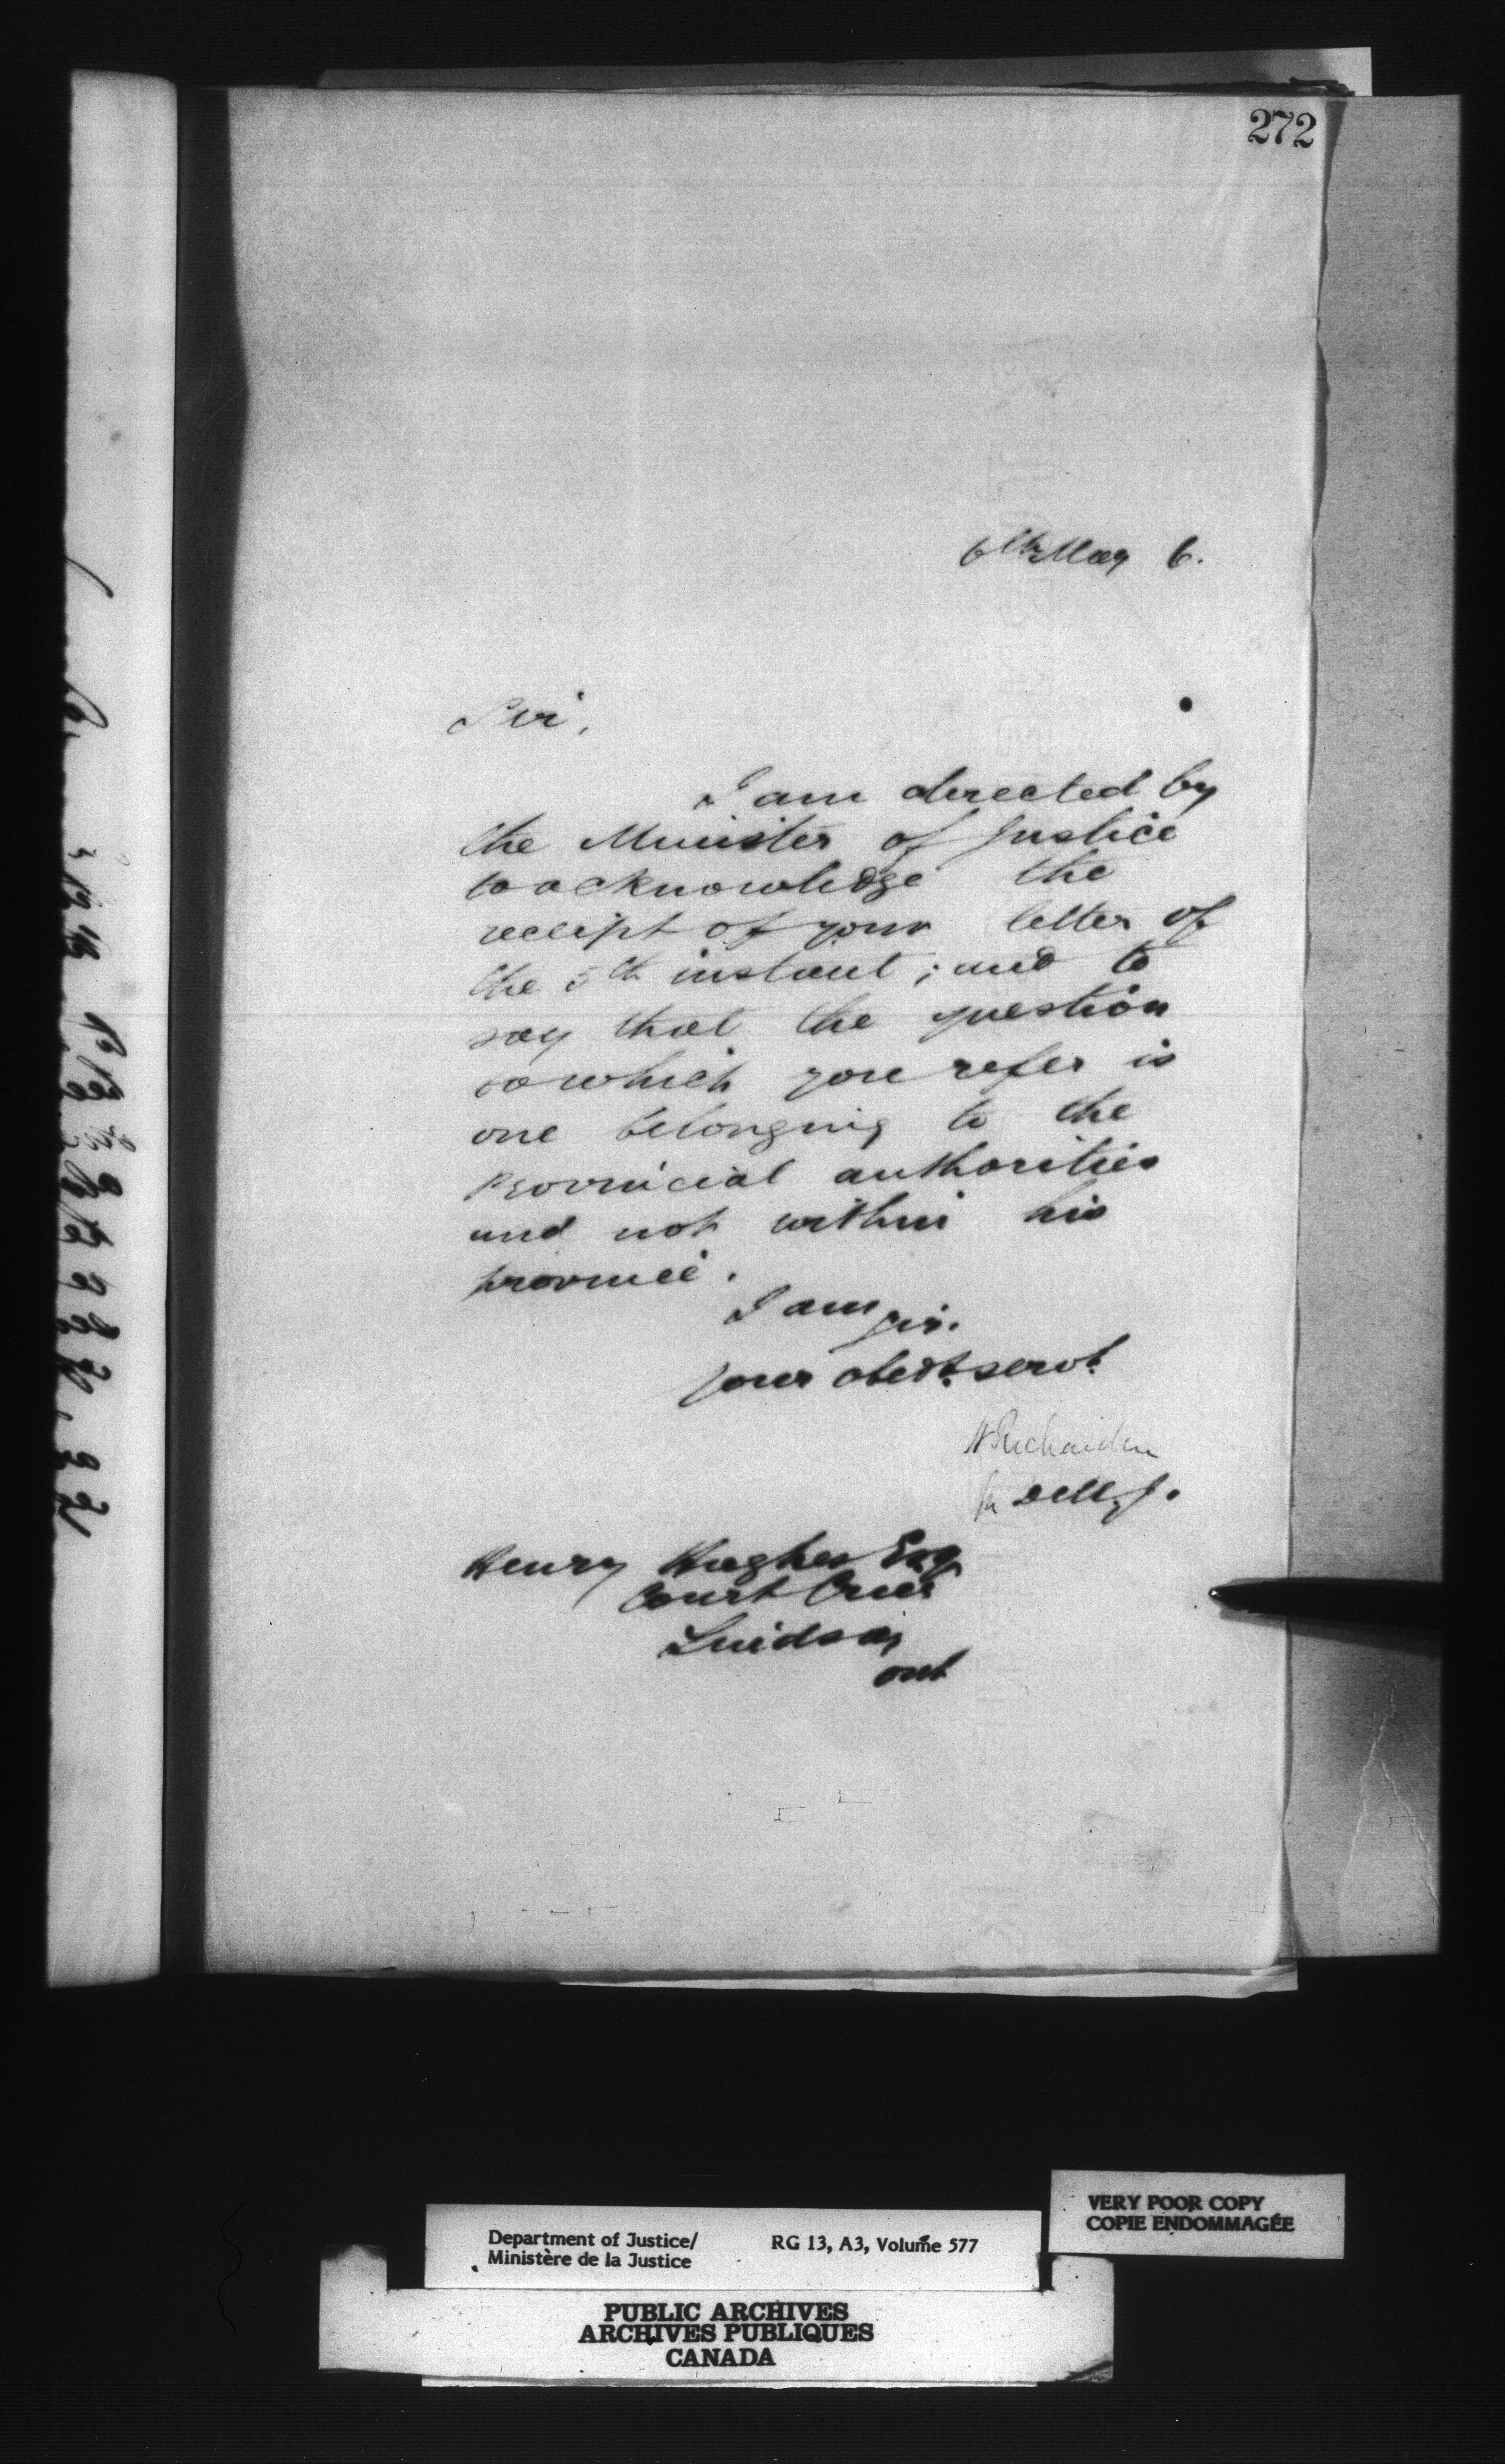 272
6th May 6.
Sir,
I am directed by
the Minister of Justice
to acknowledge the
receipt of your letter of
the 5th instant; and to
say that the question
to which you refer is
one belonging to the
Provincial authorities
and not within his
province.
I am sir.
your obedt. servt.
A Richardson
for D M J.
Henry Hughes Esq
Court Crier
Lindsay
Ont
VERY POOR COPY
COPIE ENDOMMAGÉE
Department of Justice/ RG 13, A3, Volume 577
Ministère de la Justice
PUBLIC ARCHIVES
ARCHIVES PUBLIQUES
CANADA